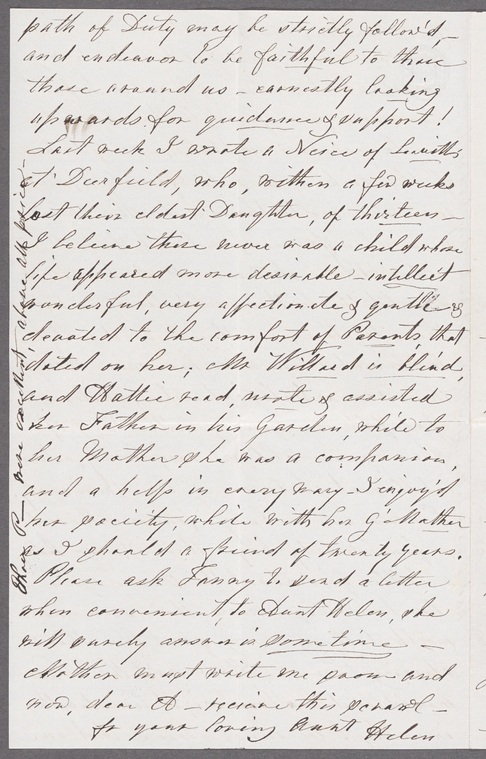 path of Duty may be strictly follow'd,—
and endeavor to be faithful to those
those around us — earnestly looking
upwards for guidance & support!
Last week I wrote a Niece of
at Deerfield, who, within a few weeks
lost their eldest Daughter, of thirteen —
I believe there never was a child whose
life appeared more desirable — intellect
wonderful, very affectionate & gentle &
devoted to the comfort of Parents, that
doted on her; Mr Willard is blind,
and Hattie read, wrote & assisted
her Father in his Garden, while to
her Mother she was a companion,
and a help in every way — I enjoy'd
her society, while with her G Mother
as I should a friend of twenty years.
Please ask Fanny to send a letter
when convenient, to Aunt Helen, she
will surely answer is sometime —
Mother must write me soon and
now, dear A — receive this scrawl —
fr your loving Aunt Helen
P — were excellent, above all price —